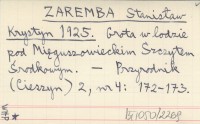 ZAREMBA Stanisław
Krystyn 1925. Grota w lodzie
pod Mięguszowieckim Szczytem
Środkowym. — Przyrodnik
(Cieszyn) 2, nr 4: 172-173.